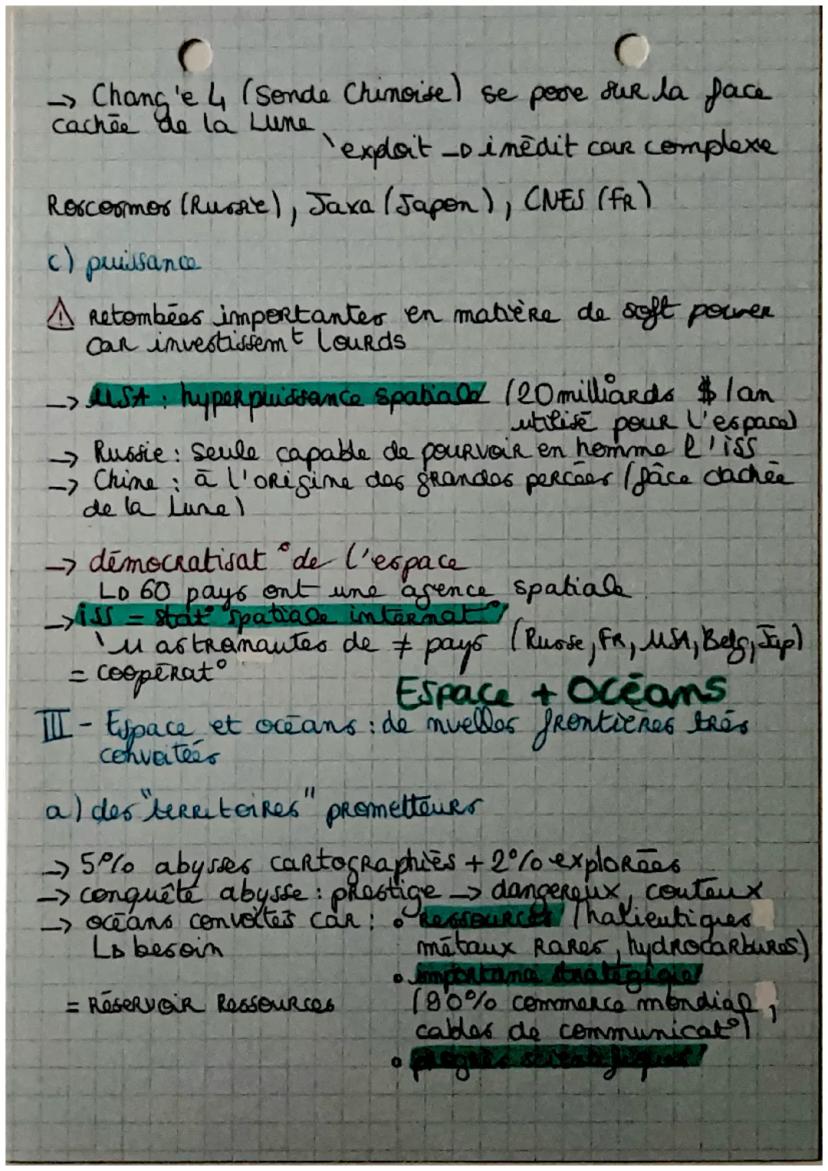 → Chang'e 4 (Sonde Chinoise) se pose sur la face
cachée de la Lune
↳ exploit → inédit car complexe
Roscosmos (Russie), Jaxa (Japon), CNES (FR)
c) puissance
⚠ Retombées importantes en matière de soft power
car investissemt lourds
→ USA : hyperpuissance spatiale (20 milliards $/an
utilisé pour l'espace)
→ Russie : seule capable de pourvoir en homme l'iSS
→ Chine : à l'origine des grandes percées (fâce cachée
de la Lune)
→ démocratisat° de l'espace
↳ 60 pays ont une agence spatiale
→ iSS = stat° spatiale internat°
astronautes de ≠ pays (Russe, FR, USA, Belg, Jap)
= coopérat°
Espace + Océans
III - Espace et océans : de nvelles frontières très
convoitées
a) des "territoires" prometteurs
→ 5% abysses cartographiés + 2% explorées
→ conquête abysse : prestige → dangereux, couteux
→ océans convoités car : • ressources (halieutiques
↳ besoin métaux rares, hydrocarbures)
• importance stratégique
= Réservoir Ressources (90% commerce mondial,
cables de communicat°)
• progrès scientifiques